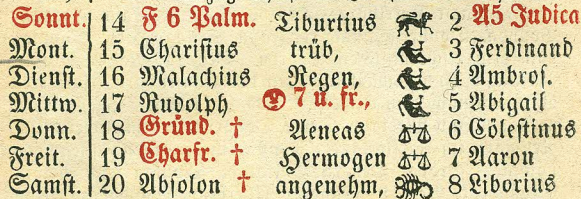 Sonnt. 14 F 6 Palm. Tiburtius 2 A5 Judica
Mont. 15 Charisius trüb, 3 Ferdinand
Dienst. 16 Malachius Regen, 4 Ambros.
Mittw. 17 Rudolph 7 u. fr., 5 Abigail
Donn. 18 Gründ. † Aeneas 6 Cölestinus
Freit. 19 Charfr. † Hermogen 7 Aaron
Samst. 20 Absolon † angenehm, 8 Liborius